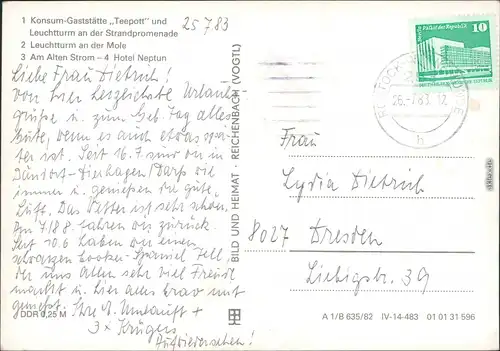 1 Konsum-Gaststätte „Teepott" und
Leuchtturm an der Strandpromenade
2 Leuchtturm an der Mole
3 Am Alten Strom – 4 Hotel Neptun
25 7 83
Liebe Frau Dietrich!
Von hier herzlichste Urlaubs-
grüße u. zum Geb. Tag alles
Gute, wenn es auch etwas spä-
ter ist. Seit 16.7. sind wir in
Dierhagen / Darß wie
immer u. genießen die gute
Luft. Das Wetter ist sehr schön.
Am 7./8.8. fahren wir zurück.
Seit 10.6 haben wir einen
schwarzen Cocker-Spaniel
der uns allen sehr viel Freude
macht u. hier alles brav mit
genießt. Ihre
3x Krügers
Aufwiedersehen!
DDR 0,25 M
BILD UND HEIMAT · REICHENBACH (VOGTL)
10
26.-7.83.12
h
Frau
Lydia Dietrich
8027 Dresden
Liebigstr. 39
A 1/B 635/82 IV-14-483 01 01 31 596